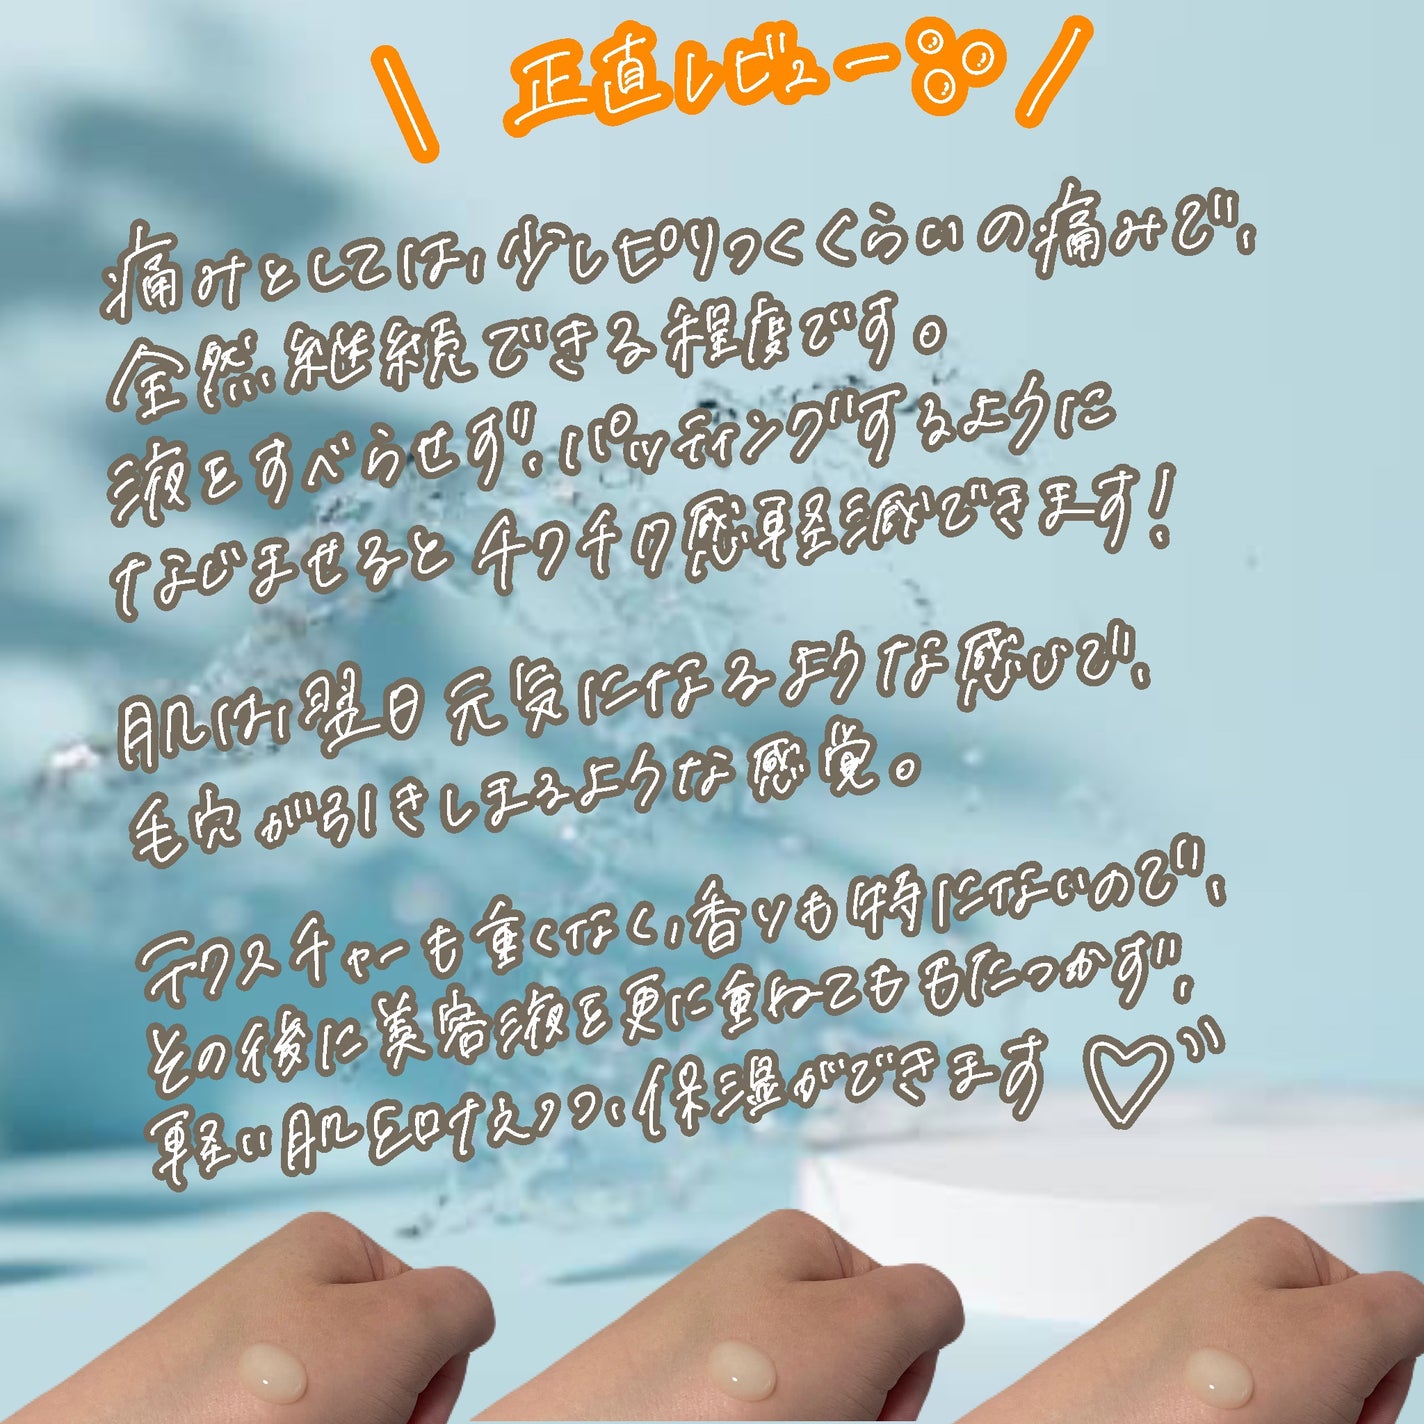 \ 正直レビュー /
痛みとしては、少しピリつくくらいの痛みで、
全然継続できる程度です。
液をすべらせず、パッティングするように
なじませるとチクチク感軽減できます!
肌は、翌日元気になるような感じで、
毛穴が引きしまるような感覚。
テクスチャーも重くなく、香りも特にないので、
その後に美容液を更に重ねてももたつかず、
軽い肌を叶えつつ、保湿ができます♡